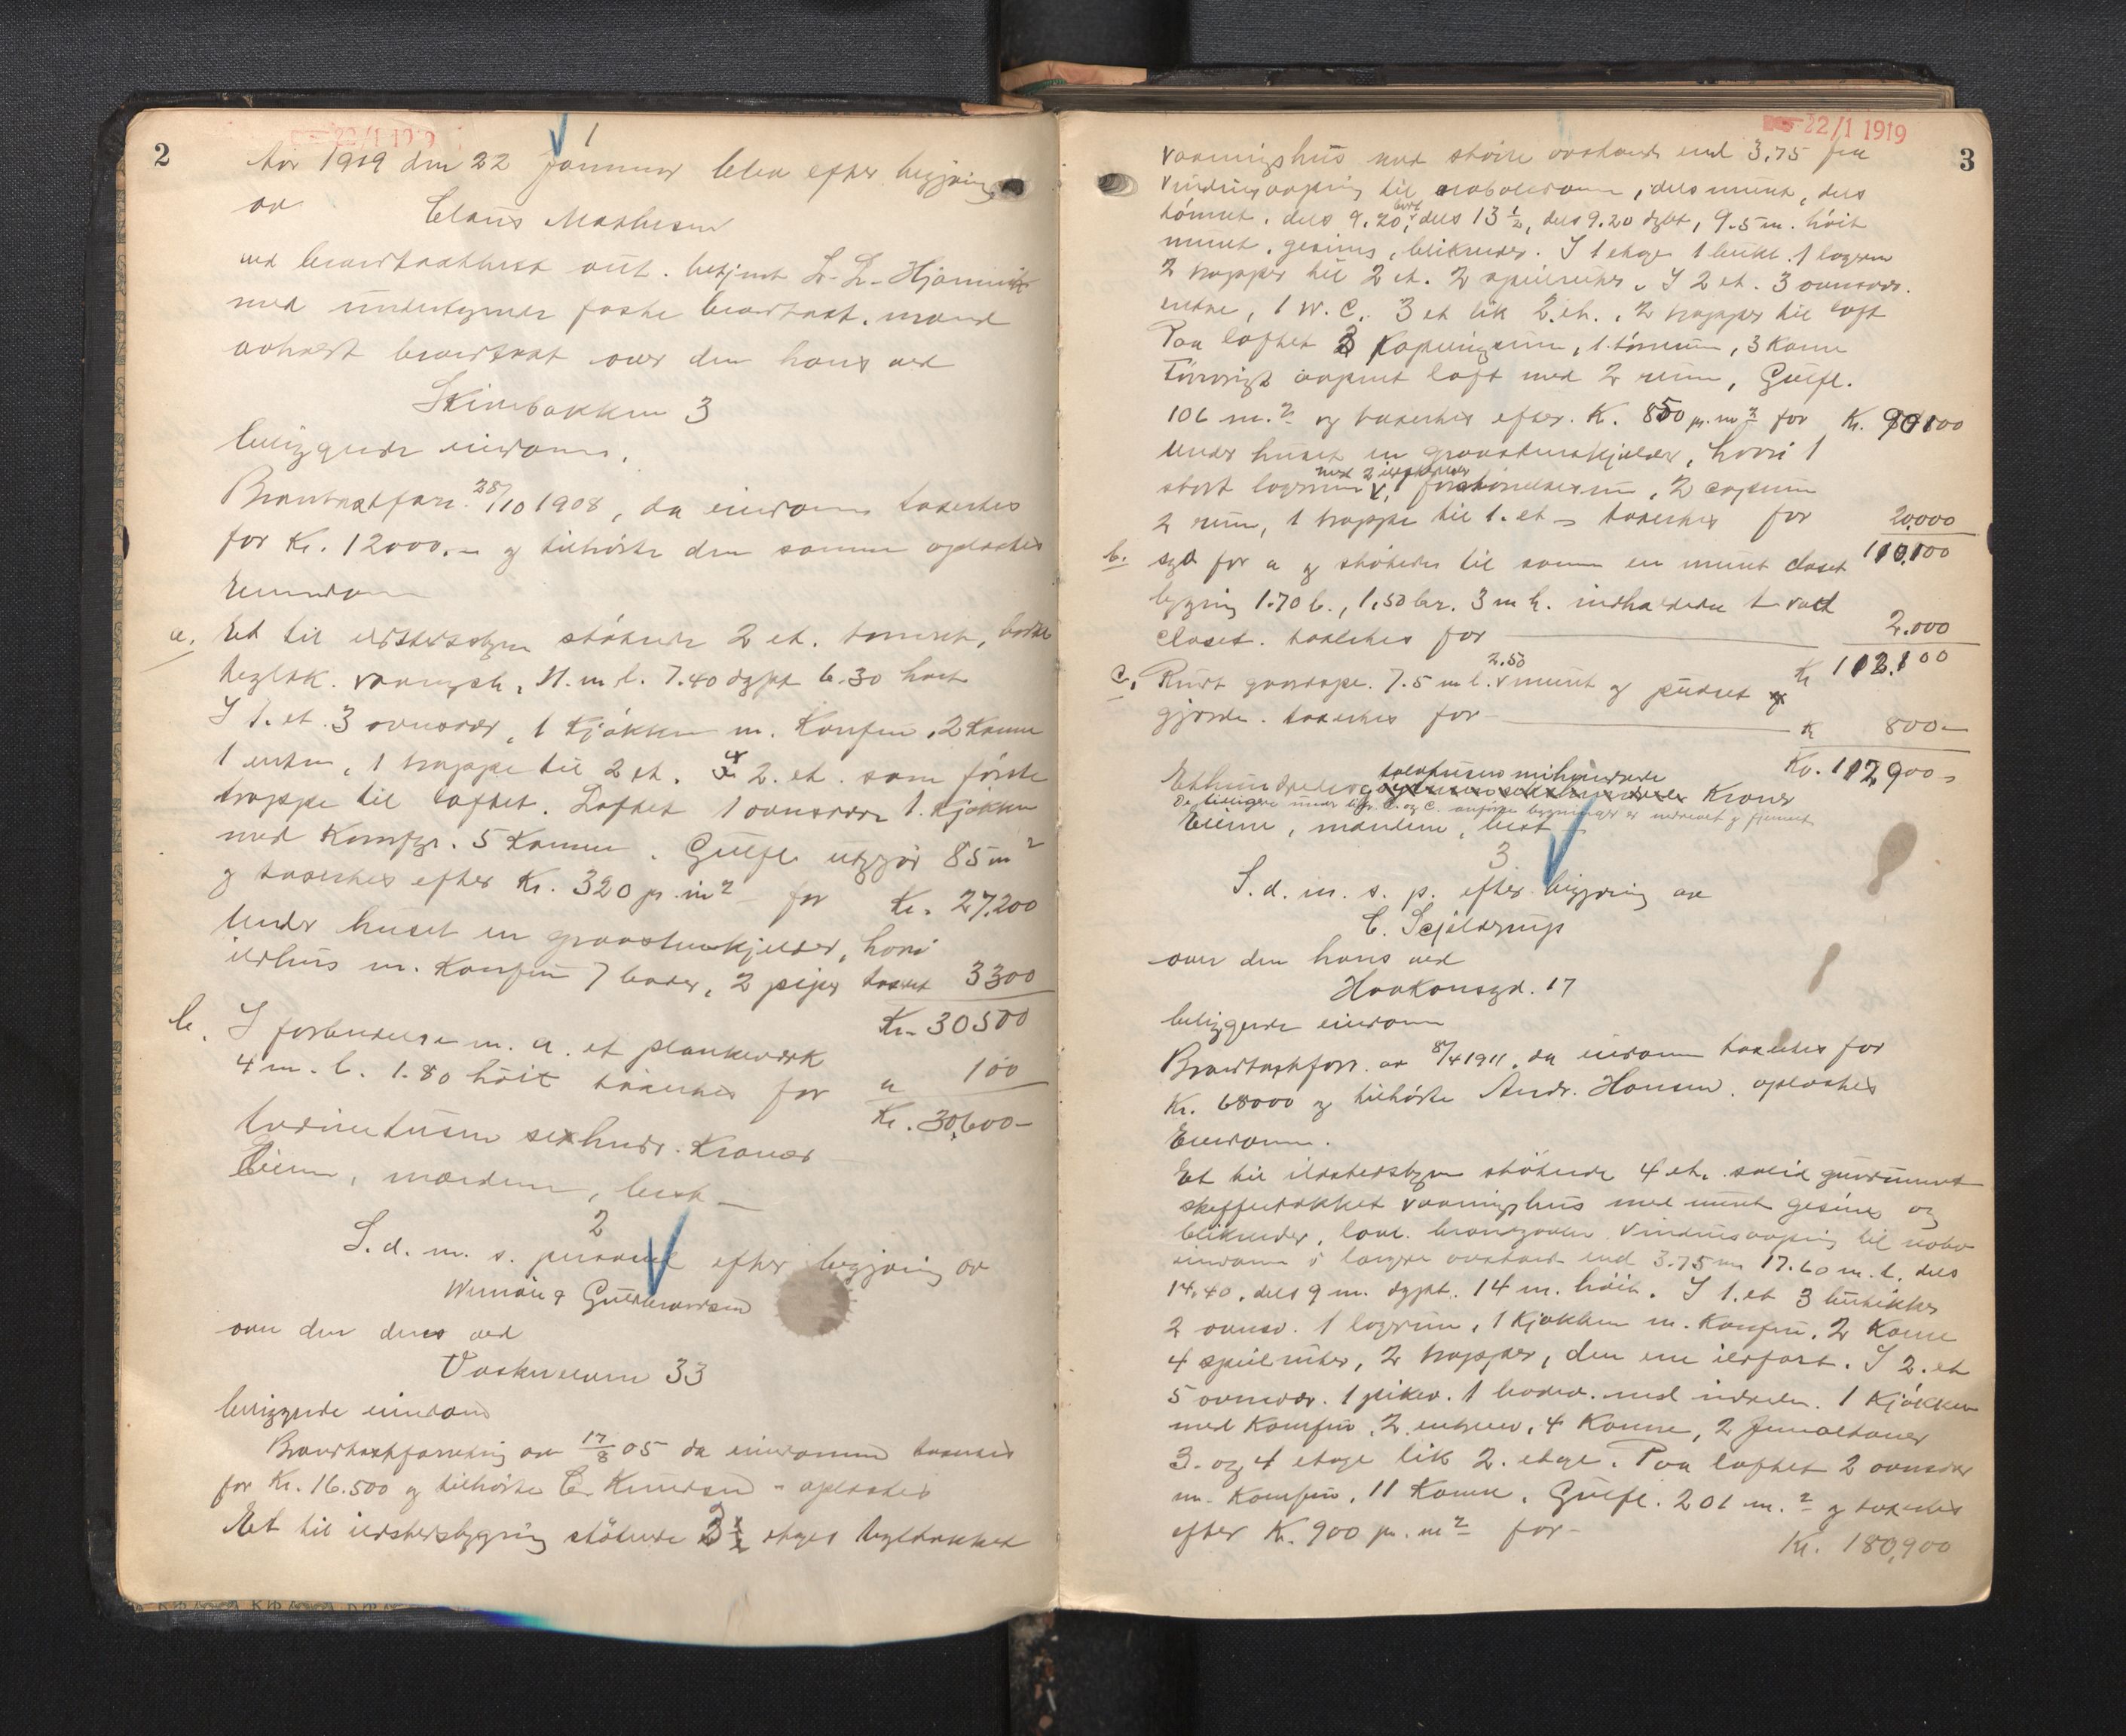 2
22/1 1919
1
Aar 1919 den 22 Januar blev efter begjæring
av Claus Mathisen
ved brandtakthest aut. betjent L. L. Hjämnik
med undertegnede faste brandtakst. mænd
avholdt brandtakst over den hans ved
Steinbakken 3
beliggende eiendom.
Brandtaktforr. 28/10 1908, da eiendom taxertes
for Kr. 12000.- og tilhørte den samme oplæstes
Eiendom
a. Et til ildstedsbygn støtende 2 et. tømret, bordkl
teglstk. vaaningsh. 11. m l. 7.40 dypt 6.30 høit
I 1. et. 3 ovnsvær, 1 Kjøkken m. Komfur, 2 Kamre
1 entre, 1 trappe til 2 et. I 2. et. som første
trappe til loftet. Loftet 1 ovnsvær 1 Kjøkken
med Komfyr. 5 Kamre. Gulfl. utgjør 85 m2
og taxertes efter Kr. 320 pr. m2 for Kr. 27.200
Under huset en graastenskjelder, hvori
ildhus m. Komfur 7 boder, 2 piper taxert 3300
Kr. 30500
b. I forbindelse m. a. et plankeværk
4 m. l. 1.80 høit taxertes for " 100
Kr. 30,600-
tredivetusen sexhundr. Kroner
Eieren, mændene, best -
2
S.d. m. s. personel efter begjæring av
Gulbrandsen
over den deres ved
Vaskerelven 33
beliggende eiendom
Brandtakstforretning av 17/8 05 da eiendommen taxertes
for Kr. 16.500 og tilhørte C. Knudsen - oplæstes
Et til ildstedsbygning støtende 3 1/2 etages tegltækket
22/1 1919
3
vaaningshus med større avstand end 3.75 fra
vinduesaapning til naboeiendom, dels muret, dels
tømret. dels 9.20 bred, dels 13 1/2, dels 9.20 dypt, 9.5 m. høit
muret gesims, blikrender. I 1 etage 1 butik. 1 lagerrum
2 trapper til 2 et. 2 speilruter. I 2 et. 3 ovnsvær.
entre, 1 W.C. 3 et lik 2. et., 2 trapper til loft
Paa loftet 3 , 1 tørrerum, 3 Kamre
Forøvrigt aapent loft med 2 rum, Gulfl.
106 m.2 og taxertes efter. Kr. 850 pr. m2 for Kr. 90100
Under huset en graastenskjelder, hvori 1
stort lagerrum med 2 , 1 , 2
2 rum, 1 trappe til 1. et - taxertes for 20,000
110,100
b. for a og støtende til samme en muret closet
bygning 1.70 l., 1.50 br. 3 m h. indholdende 1 vand
closet. taxertes for 2.000
Kr 112.100
c. Rundt gaardspl. 7.5 m l. 2.50 muret og pudset
gjærde. taxertes for K 800-
Kr. 112,900-
Ethundredeog tolvtusen nihundrede Kroner
De tidligere under litr. b. og c. anførte bygninger er nedrevet og fjernet
Eieren, mændene, best -
3
S.d. m. s. p. efter begjæring av
C. Schjelderup
over den hans ved
Haakonsgd. 17
beliggende eiendom
Brandtakstforr. av 8/4 1911, da eiendom taxertes for
Kr. 68000 og tilhørte Andr. Hansen. oplæstes
Eiendom.
Et til ildstedsbygn støtende 4 et. solid grundmuret
skiffertækket vaaningshus med muret gesims og
blikrender, lovl. brandgavler. Vinduesaapning til nabo
eiendom i længere avstand end 3.75 m 17.60 m. l. dels
14,40, dels 9 m. dypt. 14 m. høit. I 1. et 3 butikker
2 ovnsv. 1 lagerrum, 1 Kjøkken m. Komfur, 2 Kamre
4 speilruter, 2 trapper, den ene ildfast. I 2. et
5 ovnsvær. 1 pikev. 1 badev. med indredn. 1 Kjøkken
med Komfur, 2 entreer, 4 Kamre, 2 Jernaltaner
3. og 4 etage lik 2. etage. Paa loftet 2 ovnsvær
m. Komfur, 11 Kamre. Gulfl. 201 m.2 og taxertes
efter Kr. 900 pr. m2 for - Kr. 180,900